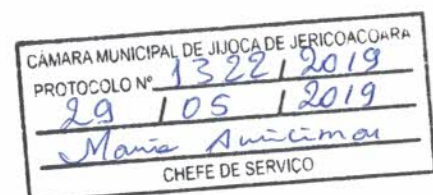 CÂMARA MUNICIPAL DE JIJOCA DE JERICOACOARA
PROTOCOLO Nº 1322 / 2019
29 / 05 / 2019
Maria
CHEFE DE SERVIÇO